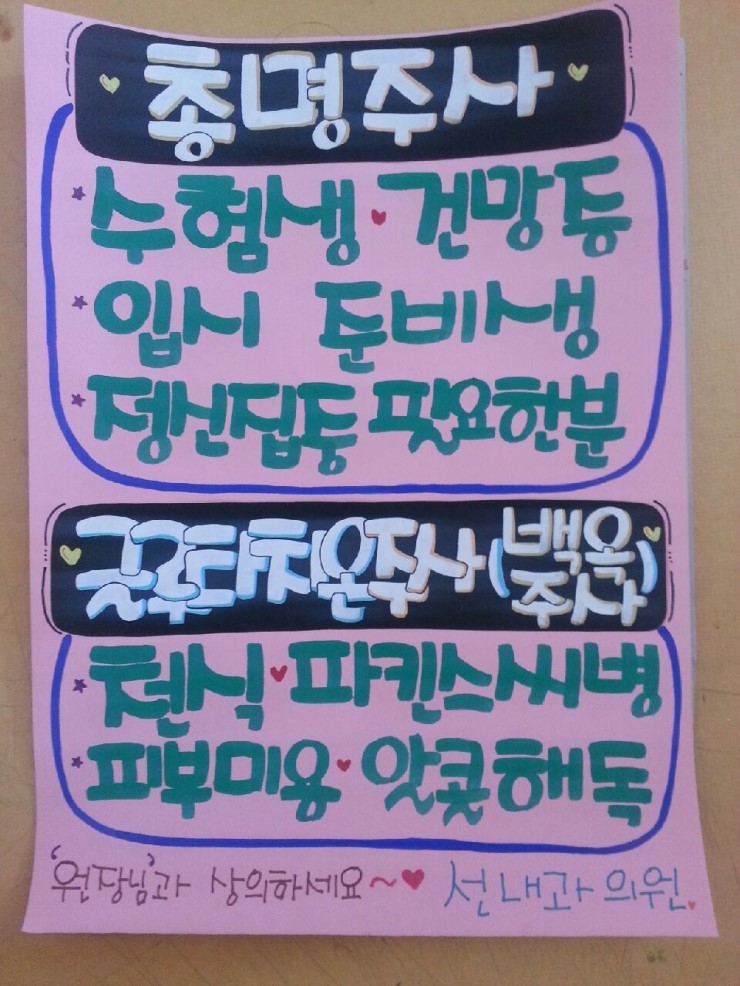 총명주사
수험생·건망증
입시 준비생
정신집중 필요한분
글루타치온주사(백옥주사)
천식·파킨스씨병
피부미용·알콜해독
'원장님'과 상의하세요~
선내과의원.